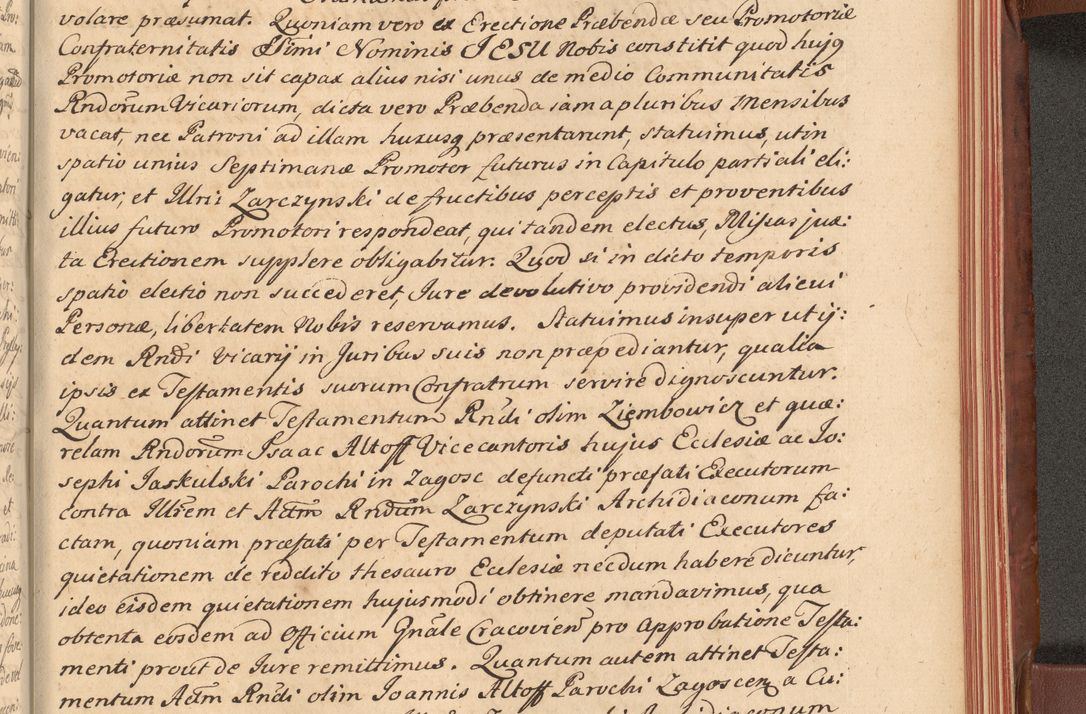 volare præsumat. Quoniam vero ex Erectione Præbendæ seu Promotoriæ
Confraternitatis SSimi Nominis JESU Nobis constitit quod hujq
Promotoriæ non sit capax alius nisi unus de medio Communitatis
Rndorum Vicariorum, dicta vero Præbenda iam a pluribus Mensibus
vacat, nec Patroni ad illam hucusq præsentarunt, statuimus, ut in
spatio unius Septimanæ Promotor futurus in Capitulo partiali eli:
gatur, et Illris Zarczynski de fructibus perceptis et proventibus
illius futuro Promotori respondeat, qui tandem electus, Missas jux:
ta Erectionem supplere obligabitur. Quod si in dicto temporis
spatio electio non succederet, Jure devolutivo providendi alicui
Personæ, libertatem Nobis reservamus. Statuimus insuper ut ij:
dem Rndi Vicarij in Juribus suis non præpediantur, qualia
ipsis ex Testamentis suorum Confratrum servire dignoscuntur.
Quantum attinet Testamentum Rndi olim Ziembowicz et quæ:
relam Rndorum Isaac Altoff Vicecantoris hujus Ecclesiæ ac Jo:
sephi Jaskulski Parochi in Zagosc defuncti præfati Executorum
contra Illrem et Adm Rndum Zarczynski Archidiaconum fa:
ctam, quoniam præfati per Testamentum deputati Executores
quietationem de reddito thesauro Ecclesiæ necdum habere dicuntur,
ideo eisdem quietationem hujusmodi obtinere mandavimus, qua
obtenta eosdem ad Officium Gnale Cracovien pro Approbatione Testa:
menti prout de Jure remittimus. Quantum autem attinet Testa:
mentum Adm Rndi olim Joannis Altoff Parochi Zagoscen a Cu: